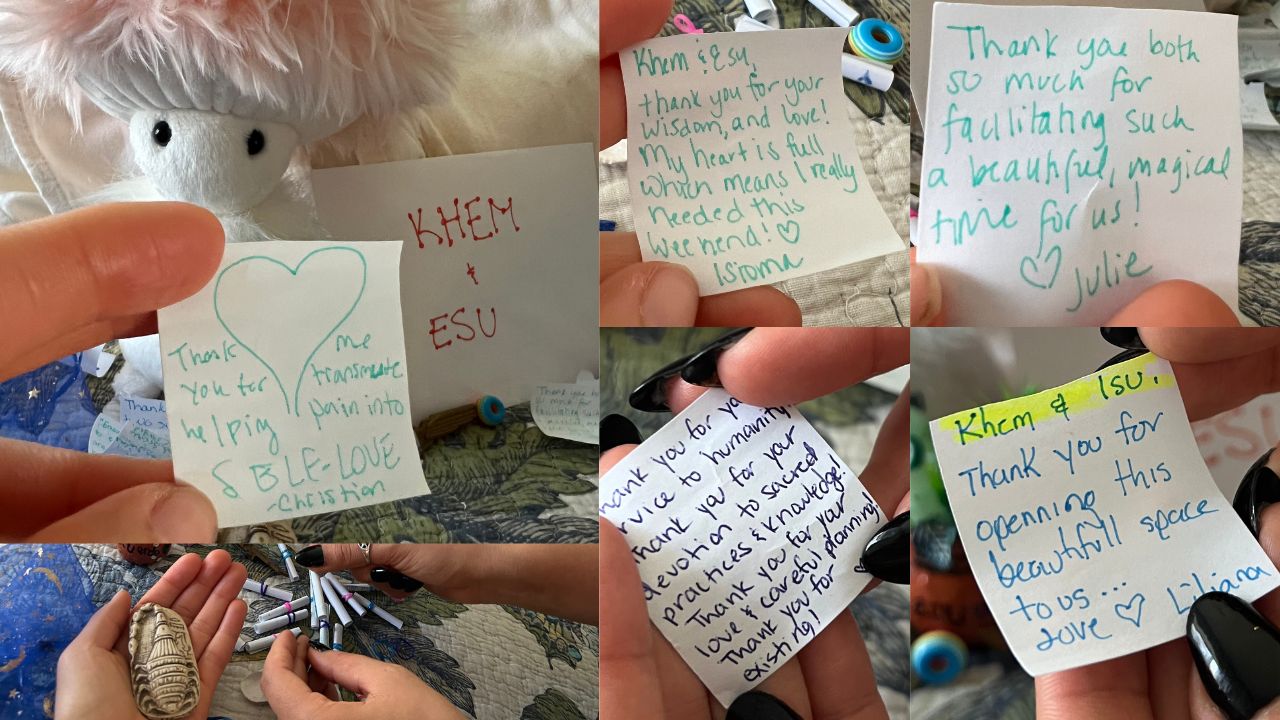 Thank
you for
helping
me
transmute
pain into
BLE-LOVE
-Christian
KHEM
&
ESU
Thank you both
so much for
facilitating such
Khem & Esu,
thank you for your
wisdom, and love!
My heart is full
which means I really
needed this
weekend! ♡
Isioma
Thank you both
so much for
facilitating such
a beautiful, magical
time for us!
♡ Julie
hank you for yo
rvice to humanity!
Thank you for your
devotion to sacred
practices & knowledge!
Thank you for your
love & careful planning!
Thank you for
existing!
Khem & Isu.
Thank you for
openning this
beautifull space
to us...
Love ♡ Liliana
ESU